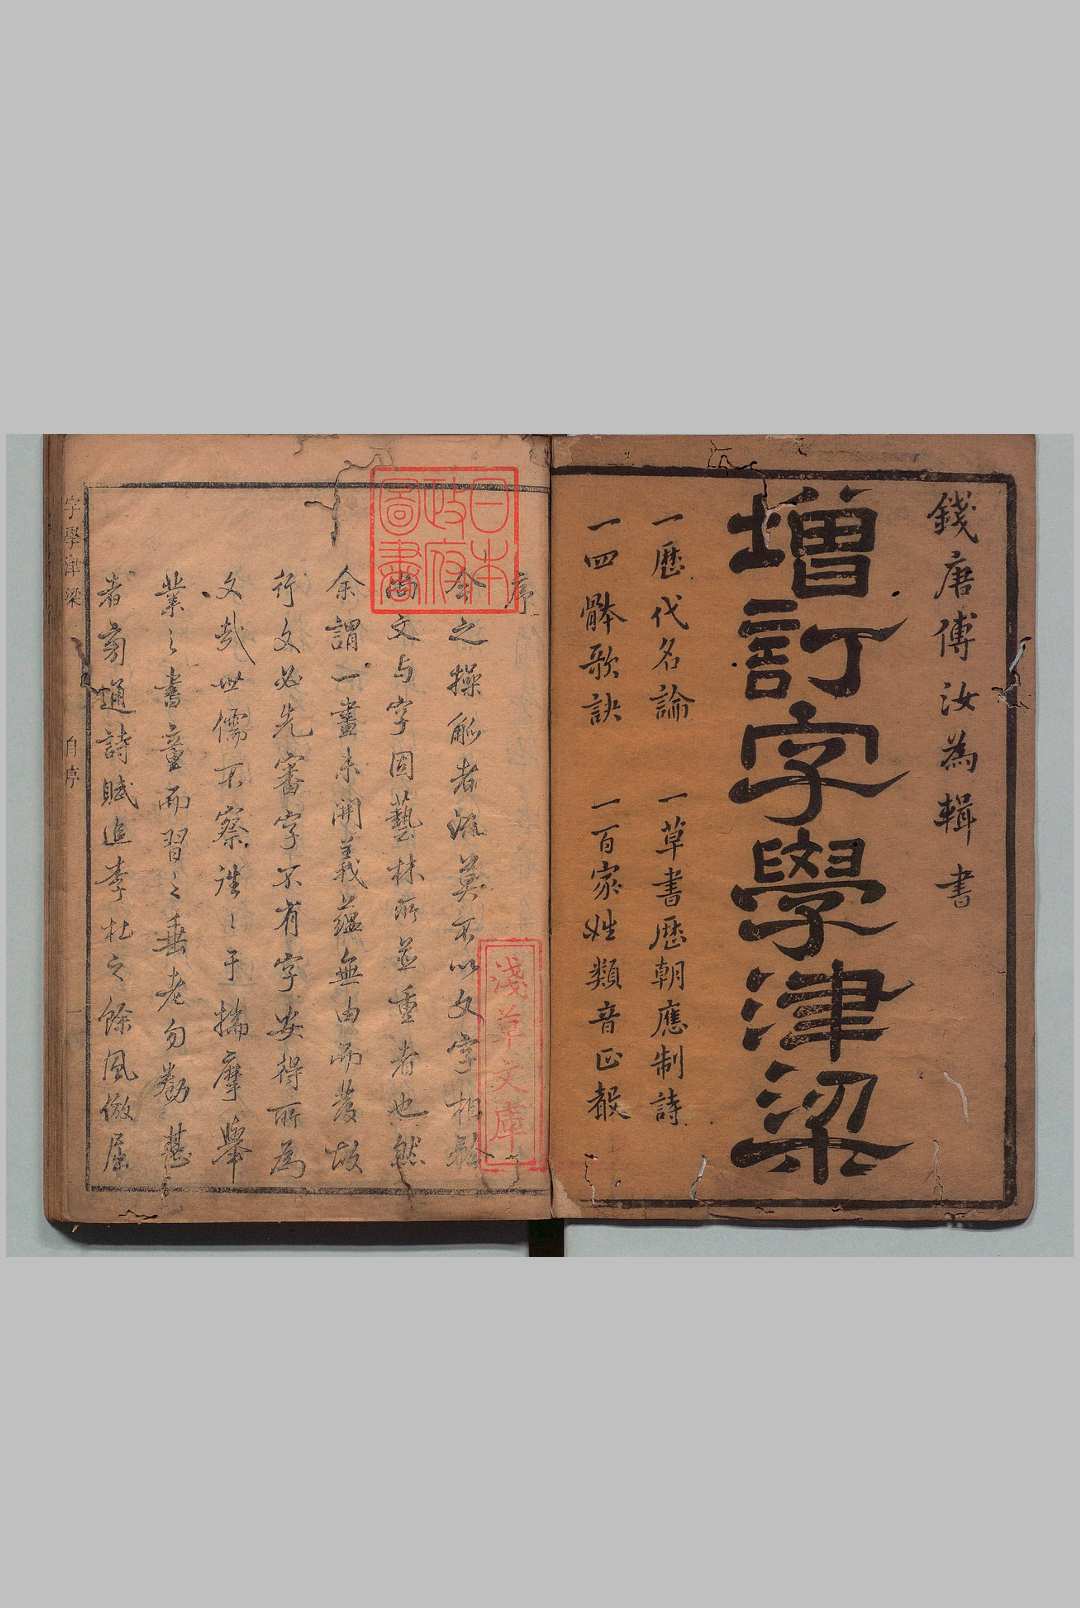 錢唐傅汝為輯書
增訂字學津梁
一歷代名論 一草書歷朝應制詩
一四骵歌訣 一百家姓類音正㲉
日本
政府
圖書
淺草文庫
序
今之操觚者流莫不以文字相矜
尚文与字固藝林所並重者也然
余謂一畫未開義蘊無由而發故
行文必先審字不有字安得所為
文哉世儒不察往〻于揣摩舉
業之書童而習之垂老勿勸甚
者旁通詩賦追李杜之餘風倣屈
字學津梁 自序 一